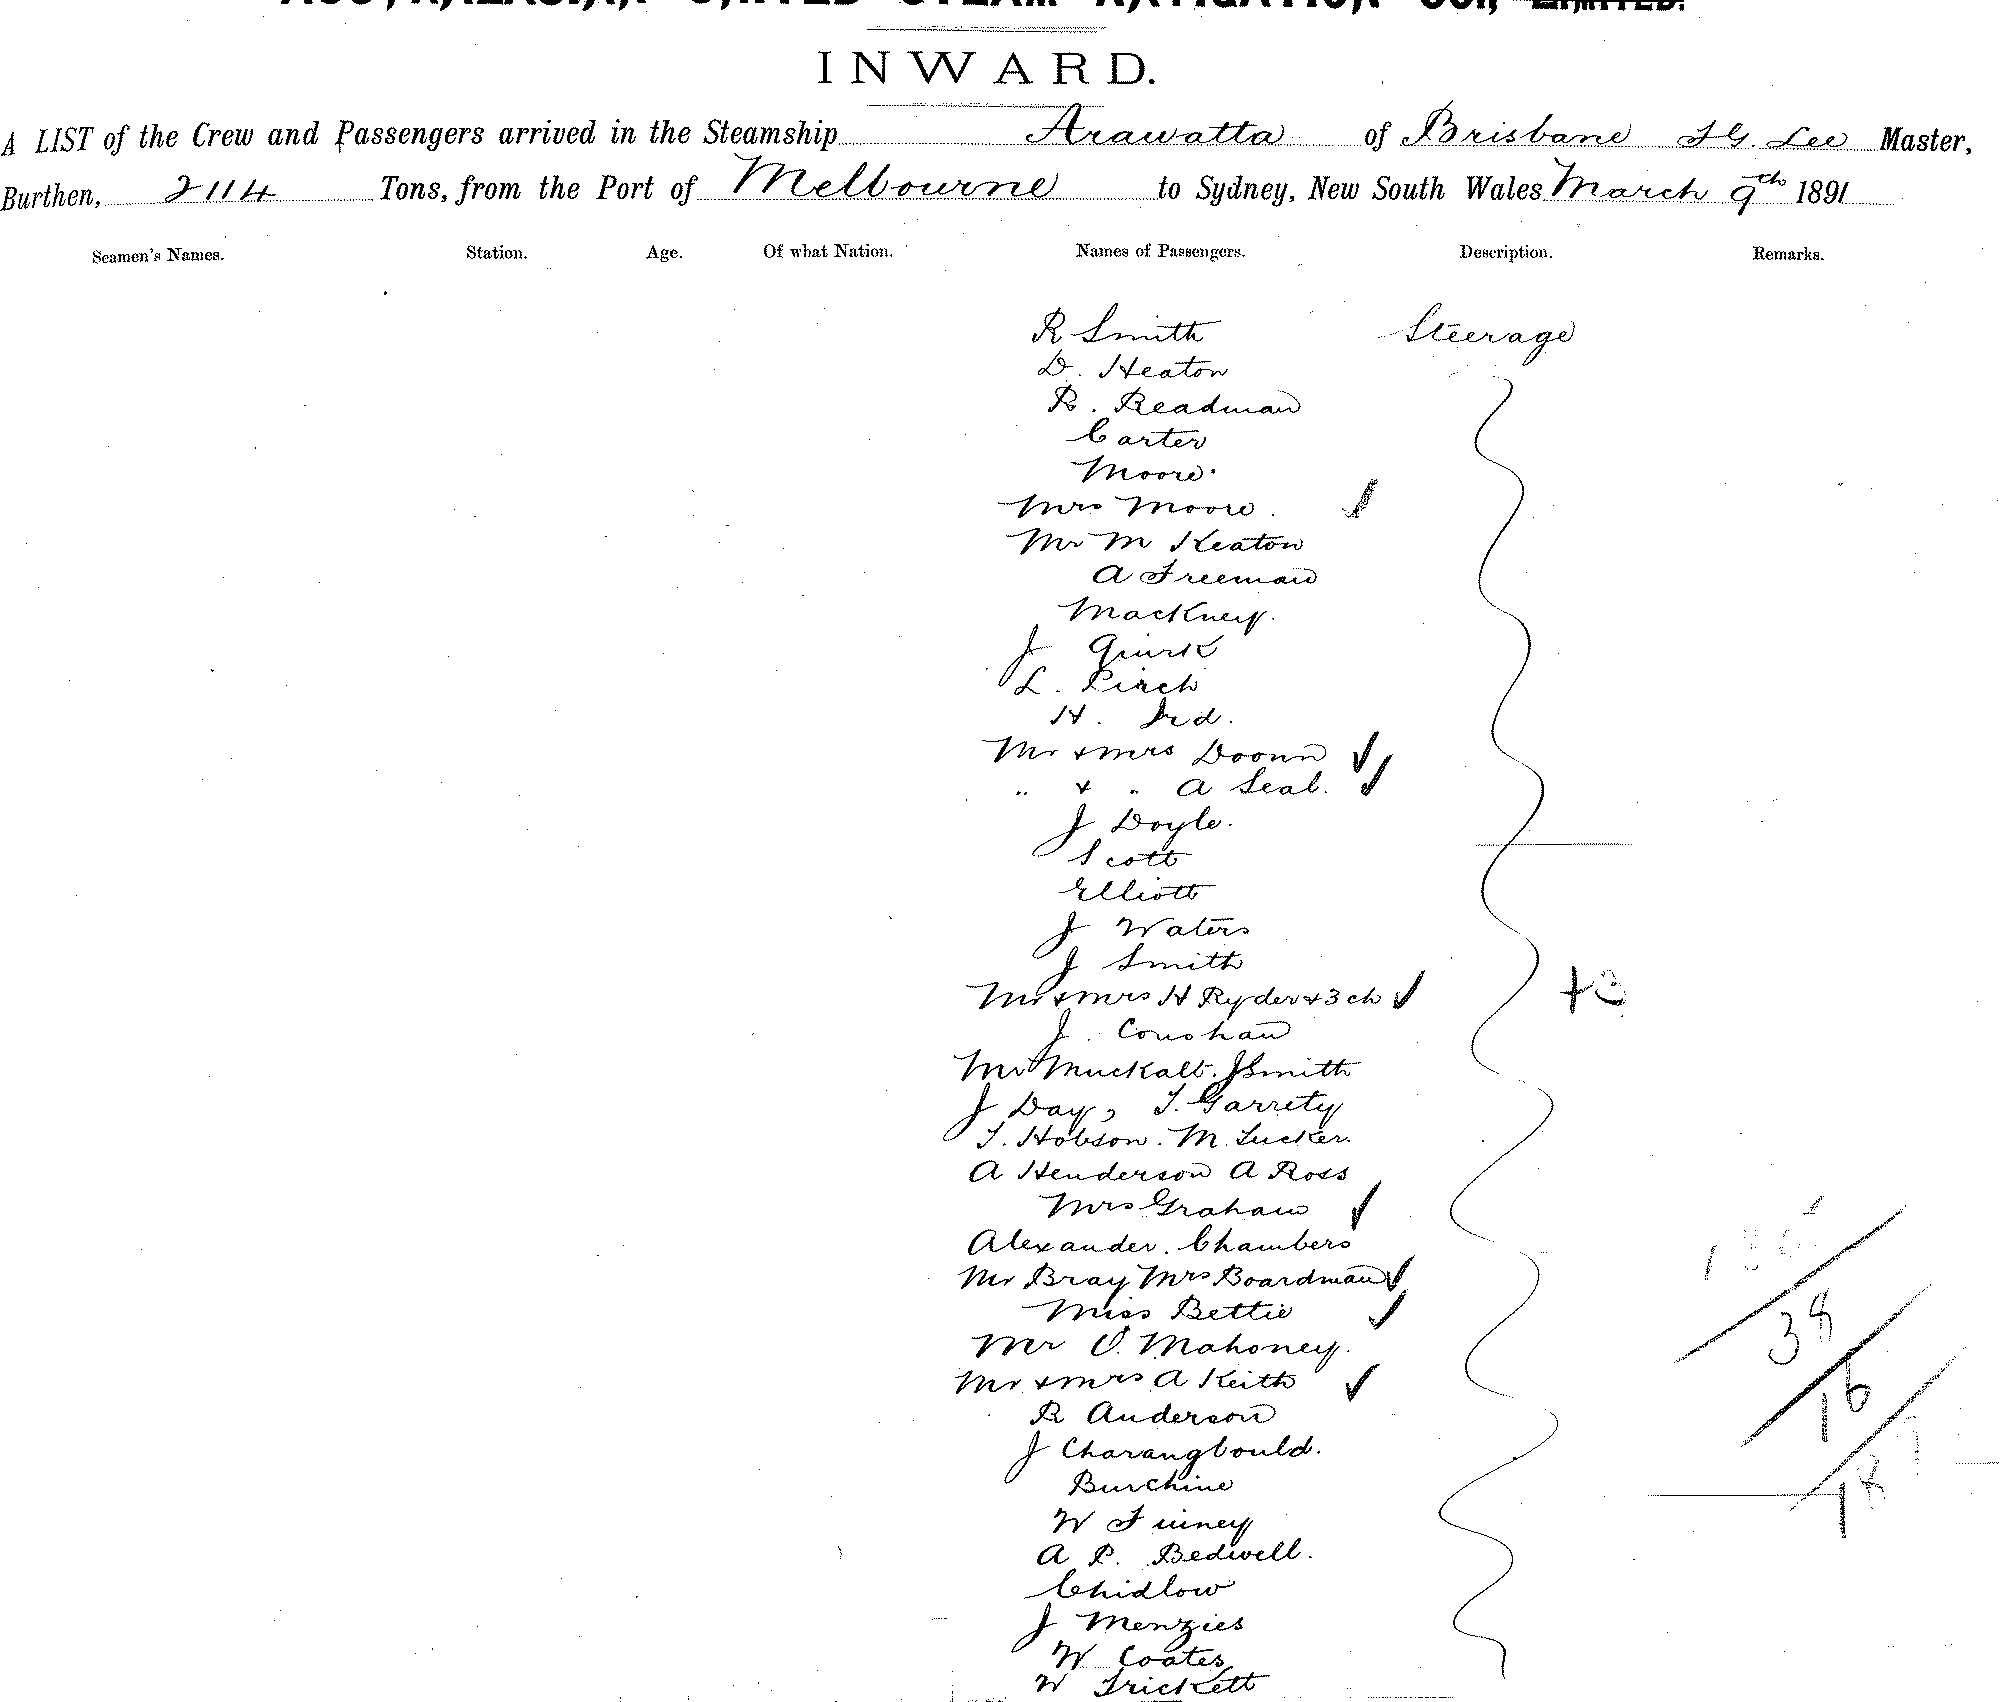 AUSTRALASIAN UNITED STEAM NAVIGATION CO., LIMITED.
INWARD.
A LIST of the Crew and Passengers arrived in the Steamship Arawatta of Brisbane J G. Lee Master,
Burthen, 2114 Tons, from the Port of Melbourne to Sydney, New South Wales March 9th 1891
Seamen's Names. Station. Age. Of what Nation. Names of Passengers. Description. Remarks.
R Smith Steerage
D. Heaton
R. Readman
Carter
Moore
Mrs Moore.
Mr M Keaton
A Freeman
Mackney.
J Quirk
L. Pirch
H. Ird.
Mr + Mrs Doonn
" + " A Seal.
J Doyle.
Scott
Elliott
J Waters
J Smith
Mr + Mrs H Ryder + 3 ch
J.
Mr Muckalt. J Smith
J Day, T. Garrety
T. Hobson. M. Tucker.
A Henderson A Ross
Mrs Graham
Alexander. Chambers
Mr Bray Mrs Boardman
Miss Bettie
Mr O. Mahoney.
Mr + Mrs A Keith
38
R Anderson
16
J Charangbould.
Burchine
18
W Finney
A P. Bedwell.
Chidlow
J Menzies
W Coates
W Trickett